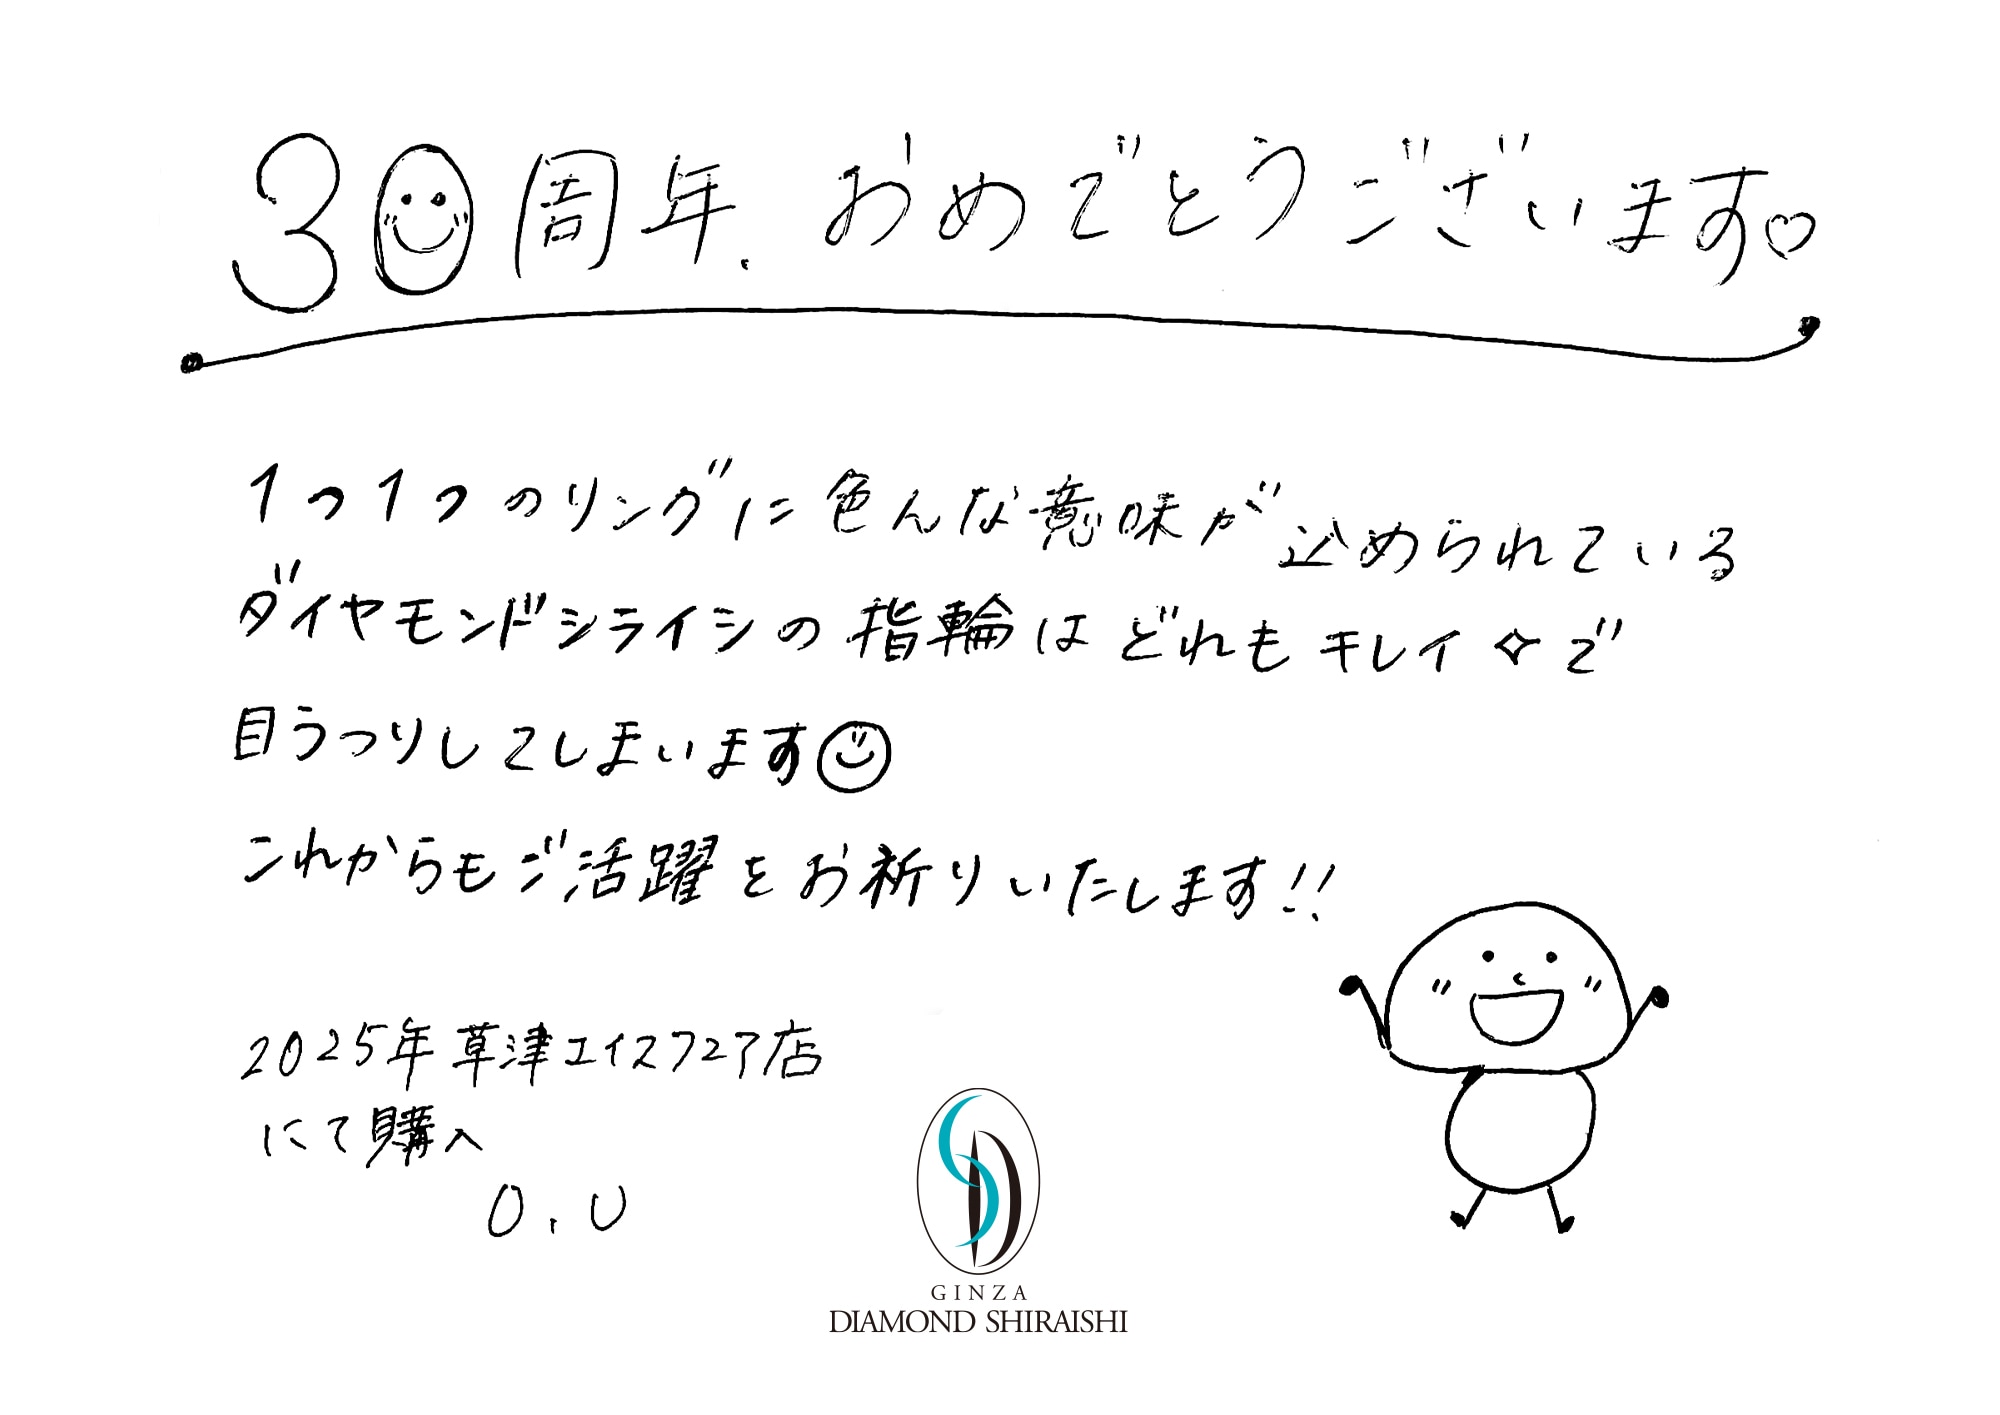 30周年.おめでとうございます♡
1つ1つのリングに色んな意味が込められている
ダイヤモンドシライシの指輪はどれもキレイ✧で
目うつりしてしまいます☺
これからもご活躍をお祈りいたします!!
2025年草津エイスクエア店
にて購入
O.U
GINZA
DIAMOND SHIRAISHI